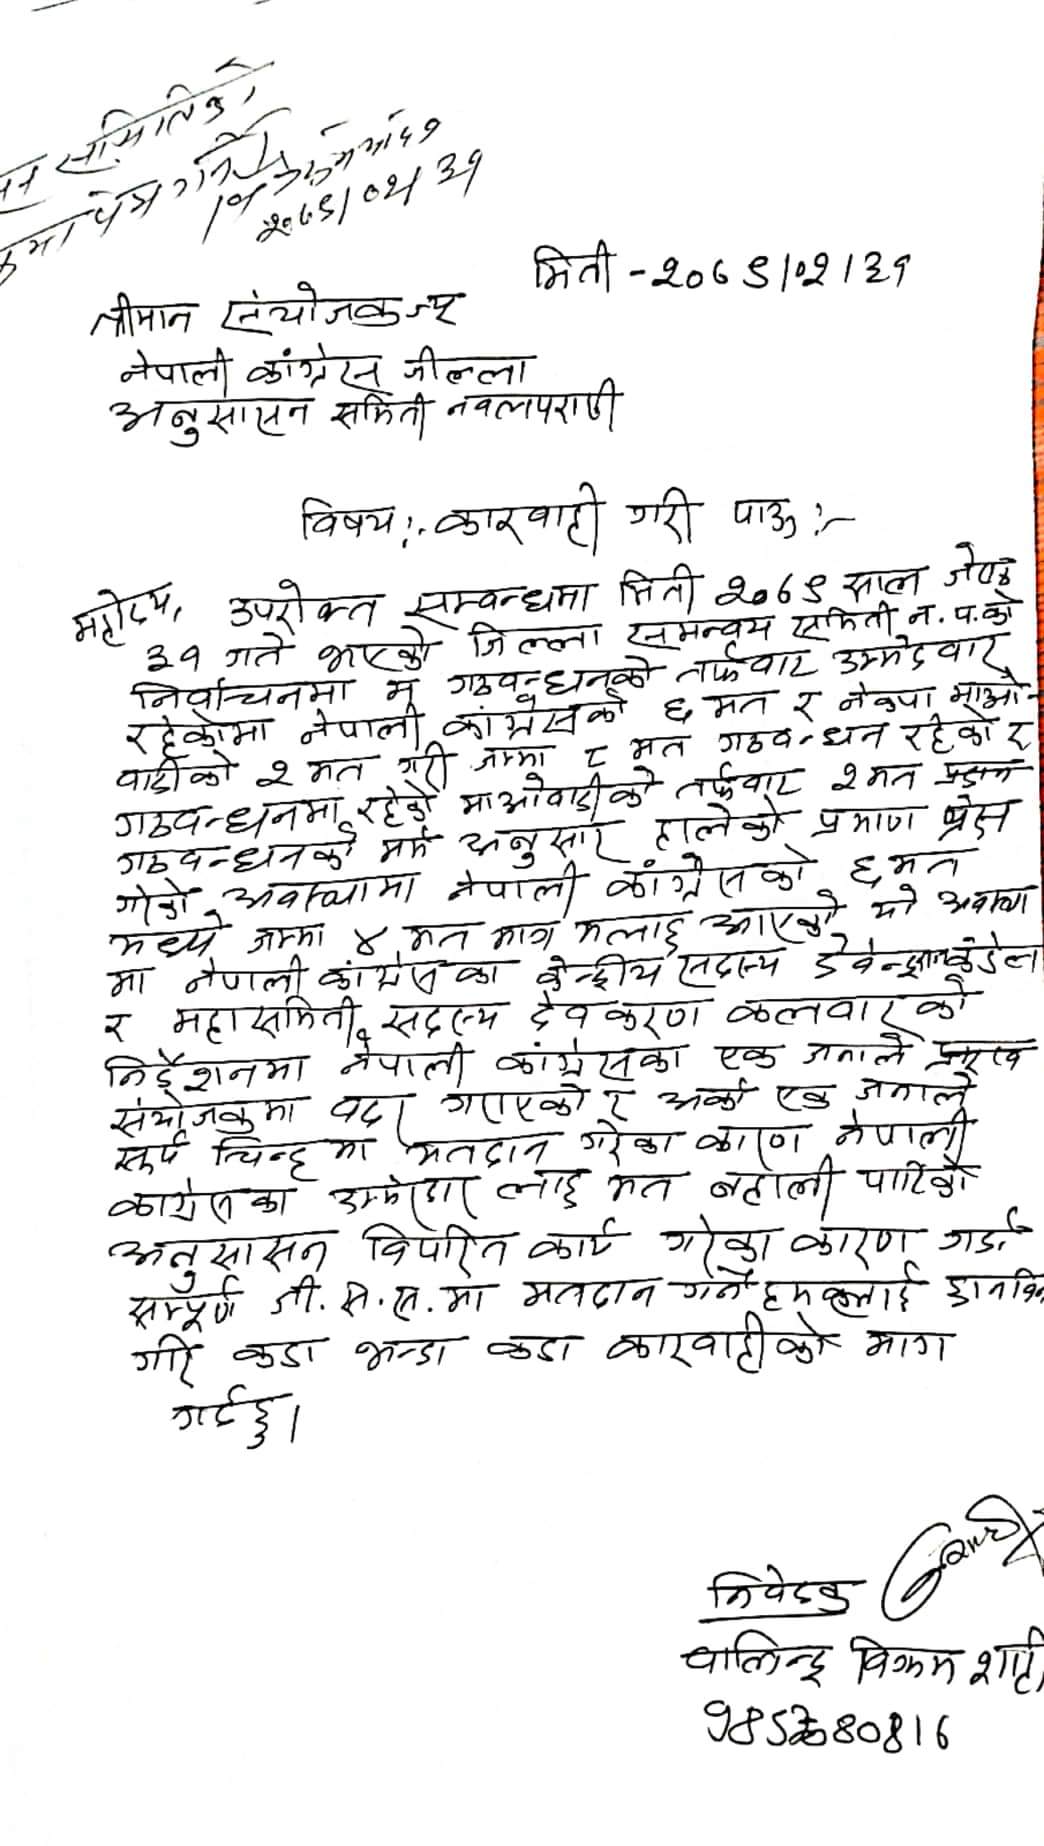 समितिको
पेस गर्ने
२०७९/०२/३१
मिती - २०७९/०२/३१
श्रीमान संयोजकज्यू
नेपाली कांग्रेस जील्ला
अनुसासन समिती नवलपरासी
विषय:- कारवाही गरी पाऊ :-
महोदय, उपरोक्त सम्वन्धमा मिती २०७९ साल जेष्ठ
३१ गते भएको जिल्ला समन्वय समिती न.प.को
निर्वाचनमा म गठवन्धनको तर्फवाट उम्मेदवार
रहेकोमा नेपाली कांग्रेसको ६ मत र नेकपा माओ-
वादीको २ मत गरी जम्मा ८ मत गठवन्धन रहेको र
गठवन्धनमा रहेको माओवादीको तर्फवाट २ मत
गठवन्धनको मर्म अनुसार हालेको प्रमाण
अवस्थामा नेपाली कांग्रेसको ६ मत
मध्ये जम्मा ४ मत मात्र मलाई आएको यो अवस्था
मा नेपाली कांग्रेसका केन्द्रीय सदस्य
र महासमिती सदस्य देवकरण कलवारको
निर्देशनमा नेपाली कांग्रेसका एक जनाले प्रमुख
संयोजकमा वदर गराएको र अर्का एक जनाले
सूर्य चिन्हमा मतदान गरेका कारण नेपाली
कांग्रेसका उम्मेदार लाई मत नहाली पार्टिको
अनुसासन विपरित कार्य गरेका कारण गर्दा
सम्पूर्ण जी.स.स.मा मतदान गर्ने हरुलाई छानविन
गरि कडा भन्डा कडा कारवाहीको माग
गर्दछु।
निवेदक
वालिन्द्र विक्रम शाही